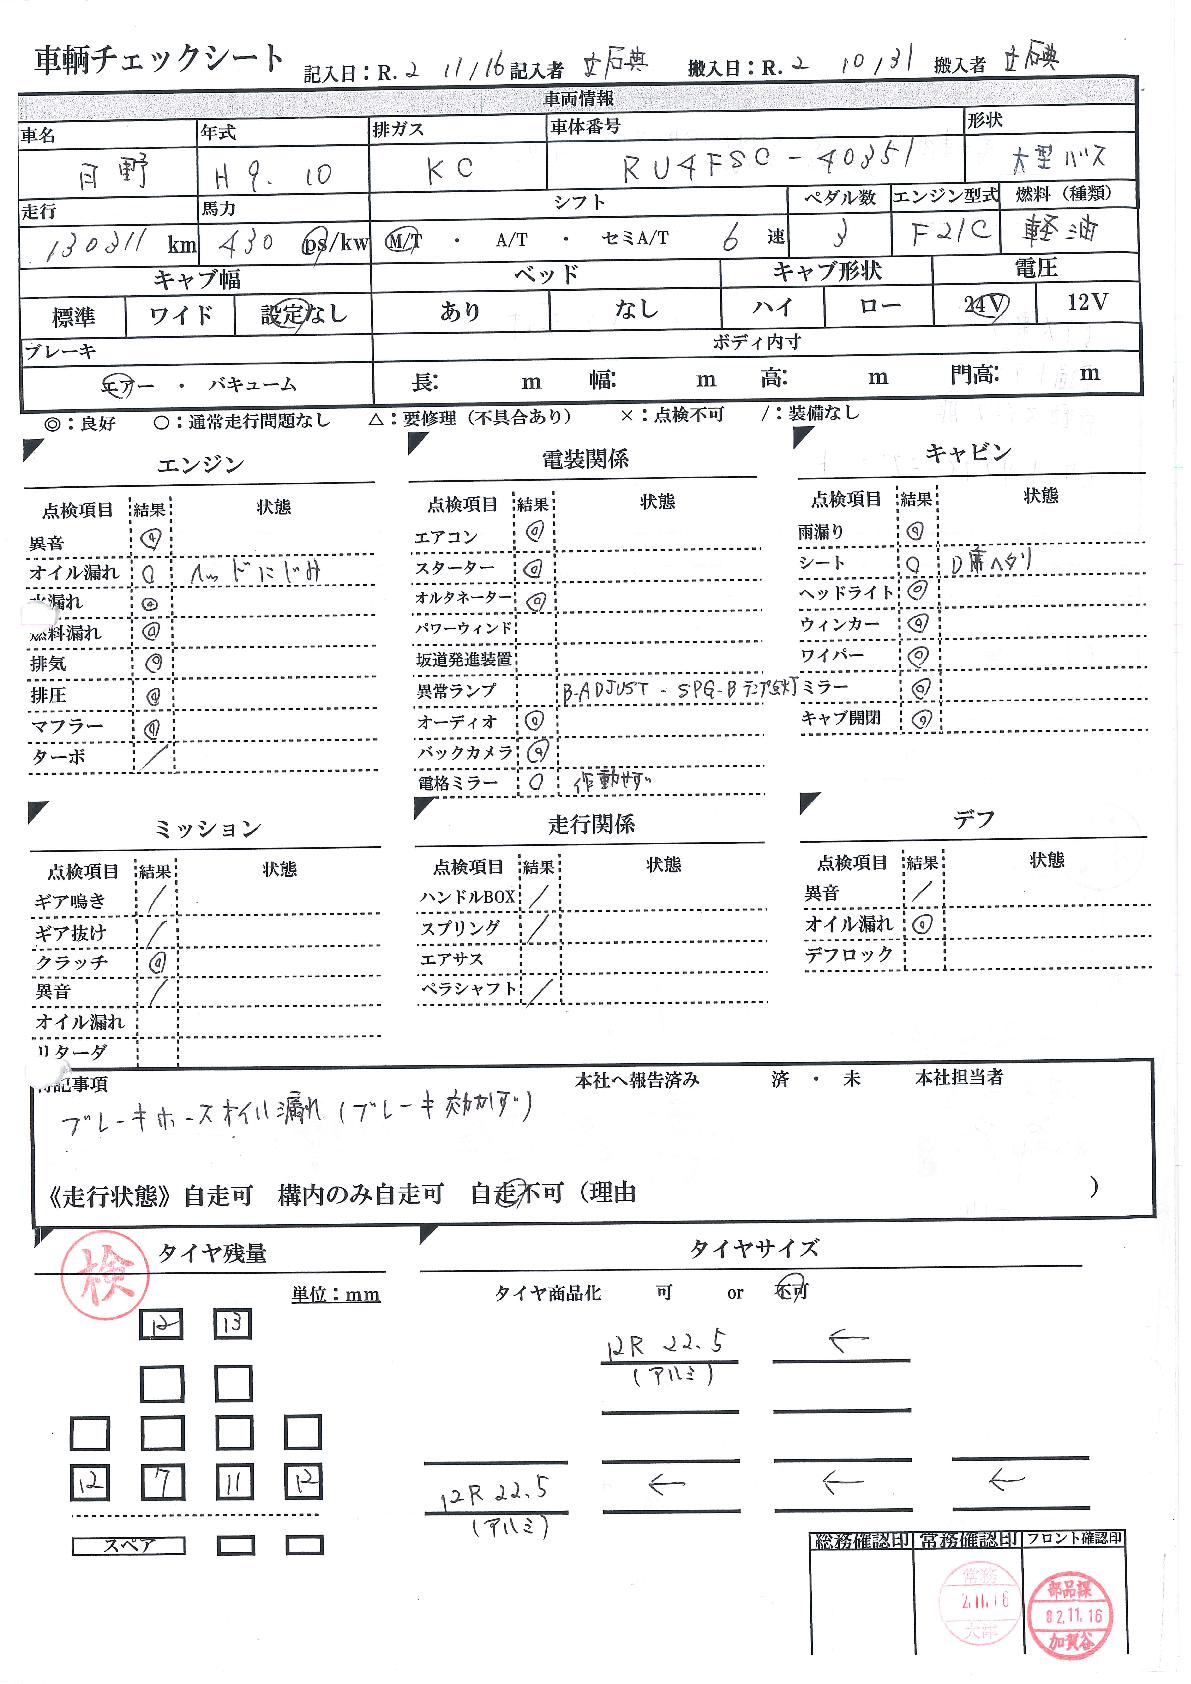 車輌チェックシート 記入日：R. 2 11/16 記入者 立石典 搬入日：R. 2 10/31 搬入者 立石典
車両情報
車名 年式 排ガス 車体番号 形状
日野 H9.10 KC RU4FSC-40351 大型バス
走行 馬力 シフト ペダル数 エンジン型式 燃料（種類）
130311 km 430 ps/kw M/T ・ A/T ・ セミA/T 6 速 3 F21C 軽油
キャブ幅 ベッド キャブ形状 電圧
標準 ワイド 設定なし あり なし ハイ ロー 24V 12V
ブレーキ ボディ内寸
エアー ・ バキューム 長： m 幅： m 高： m 門高： m
◎：良好 ○：通常走行問題なし △：要修理（不具合あり） ×：点検不可 /：装備なし
エンジン
点検項目 結果 状態
異音 ◎
オイル漏れ ○ ヘッドにじみ
水漏れ ◎
燃料漏れ ◎
排気 ◎
排圧 ◎
マフラー ◎
ターボ /
電装関係
点検項目 結果 状態
エアコン ◎
スターター ◎
オルタネーター ◎
パワーウィンド
坂道発進装置
異常ランプ B-ADJUST - SPG-B ランプ点灯
オーディオ ◎
バックカメラ ◎
電格ミラー ○ 作動せず
キャビン
点検項目 結果 状態
雨漏り ◎
シート ○ D席ヘタリ
ヘッドライト ◎
ウィンカー ◎
ワイパー ◎
ミラー ◎
キャブ開閉 ◎
ミッション
点検項目 結果 状態
ギア鳴き /
ギア抜け /
クラッチ ◎
異音 /
オイル漏れ
リターダ
走行関係
点検項目 結果 状態
ハンドルBOX /
スプリング /
エアサス
ペラシャフト /
デフ
点検項目 結果 状態
異音 /
オイル漏れ ◎
デフロック
特記事項 本社へ報告済み 済 ・ 未 本社担当者
ブレーキホースオイル漏れ（ブレーキ効かず）
《走行状態》自走可 構内のみ自走可 自走不可（理由 ）
タイヤ残量
検
単位：mm
12 13
12 7 11 12
スペア
タイヤサイズ
タイヤ商品化 可 or 不可
12R 22.5 ←
（アルミ）
12R 22.5 ← ← ←
（アルミ）
総務確認印 常務確認印 フロント確認印
常務
2.11.16
部品課
82.11.16
加賀谷